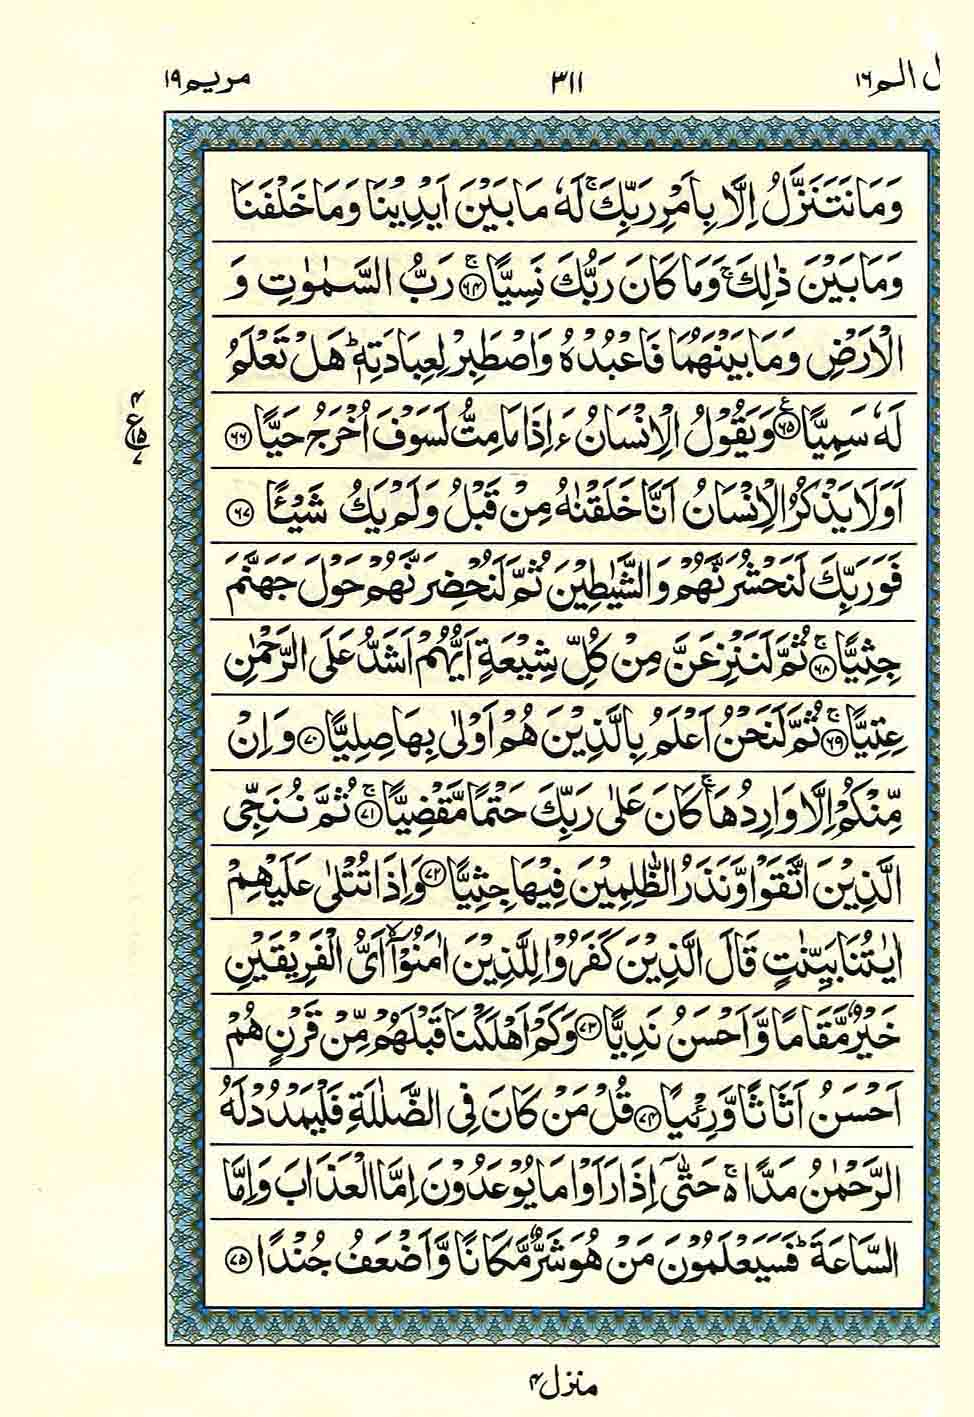 ل الم ١٦ ٣١١ مريم ١٩
وَمَا نَتَنَزَّلُ اِلَّا بِاَمْرِ رَبِّكَ ۚ لَهٗ مَا بَيْنَ اَيْدِيْنَا وَمَا خَلْفَنَا
وَمَا بَيْنَ ذٰلِكَ ۚ وَمَا كَانَ رَبُّكَ نَسِيًّا ۚ ﴿٦٤﴾ رَبُّ السَّمٰوٰتِ وَ
الْاَرْضِ وَمَا بَيْنَهُمَا فَاعْبُدْهُ وَاصْطَبِرْ لِعِبَادَتِهٖ ؕ هَلْ تَعْلَمُ
لَهٗ سَمِيًّا ﴿٦٥﴾ ع وَيَقُوْلُ الْاِنْسَانُ ءَاِذَا مَا مِتُّ لَسَوْفَ اُخْرَجُ حَيًّا ﴿٦٦﴾
ع ١٥
اَوَلَا يَذْكُرُ الْاِنْسَانُ اَنَّا خَلَقْنٰهُ مِنْ قَبْلُ وَلَمْ يَكُ شَيْـًٔا ﴿٦٧﴾
فَوَرَبِّكَ لَنَحْشُرَنَّهُمْ وَالشَّيٰطِيْنَ ثُمَّ لَنُحْضِرَنَّهُمْ حَوْلَ جَهَنَّمَ
جِثِيًّا ۚ ﴿٦٨﴾ ثُمَّ لَنَنْزِعَنَّ مِنْ كُلِّ شِيْعَةٍ اَيُّهُمْ اَشَدُّ عَلَى الرَّحْمٰنِ
عِتِيًّا ۚ ﴿٦٩﴾ ثُمَّ لَنَحْنُ اَعْلَمُ بِالَّذِيْنَ هُمْ اَوْلٰى بِهَا صِلِيًّا ﴿٧٠﴾ وَاِنْ
مِّنْكُمْ اِلَّا وَارِدُهَا ۚ كَانَ عَلٰى رَبِّكَ حَتْمًا مَّقْضِيًّا ۚ ﴿٧١﴾ ثُمَّ نُنَجِّى
الَّذِيْنَ اتَّقَوْا وَّنَذَرُ الظّٰلِمِيْنَ فِيْهَا جِثِيًّا ﴿٧٢﴾ وَاِذَا تُتْلٰى عَلَيْهِمْ
اٰيٰتُنَا بَيِّنٰتٍ قَالَ الَّذِيْنَ كَفَرُوْا لِلَّذِيْنَ اٰمَنُوْۤا ۙ اَىُّ الْفَرِيْقَيْنِ
خَيْرٌ مَّقَامًا وَّاَحْسَنُ نَدِيًّا ﴿٧٣﴾ وَكَمْ اَهْلَكْنَا قَبْلَهُمْ مِّنْ قَرْنٍ هُمْ
اَحْسَنُ اَثَاثًا وَّرِءْيًا ﴿٧٤﴾ قُلْ مَنْ كَانَ فِى الضَّلٰلَةِ فَلْيَمْدُدْ لَهُ
الرَّحْمٰنُ مَدًّا ۚ۬ حَتّٰٓى اِذَا رَاَوْا مَا يُوْعَدُوْنَ اِمَّا الْعَذَابَ وَاِمَّا
السَّاعَةَ ؕ فَسَيَعْلَمُوْنَ مَنْ هُوَ شَرٌّ مَّكَانًا وَّاَضْعَفُ جُنْدًا ﴿٧٥﴾
منزل ٤